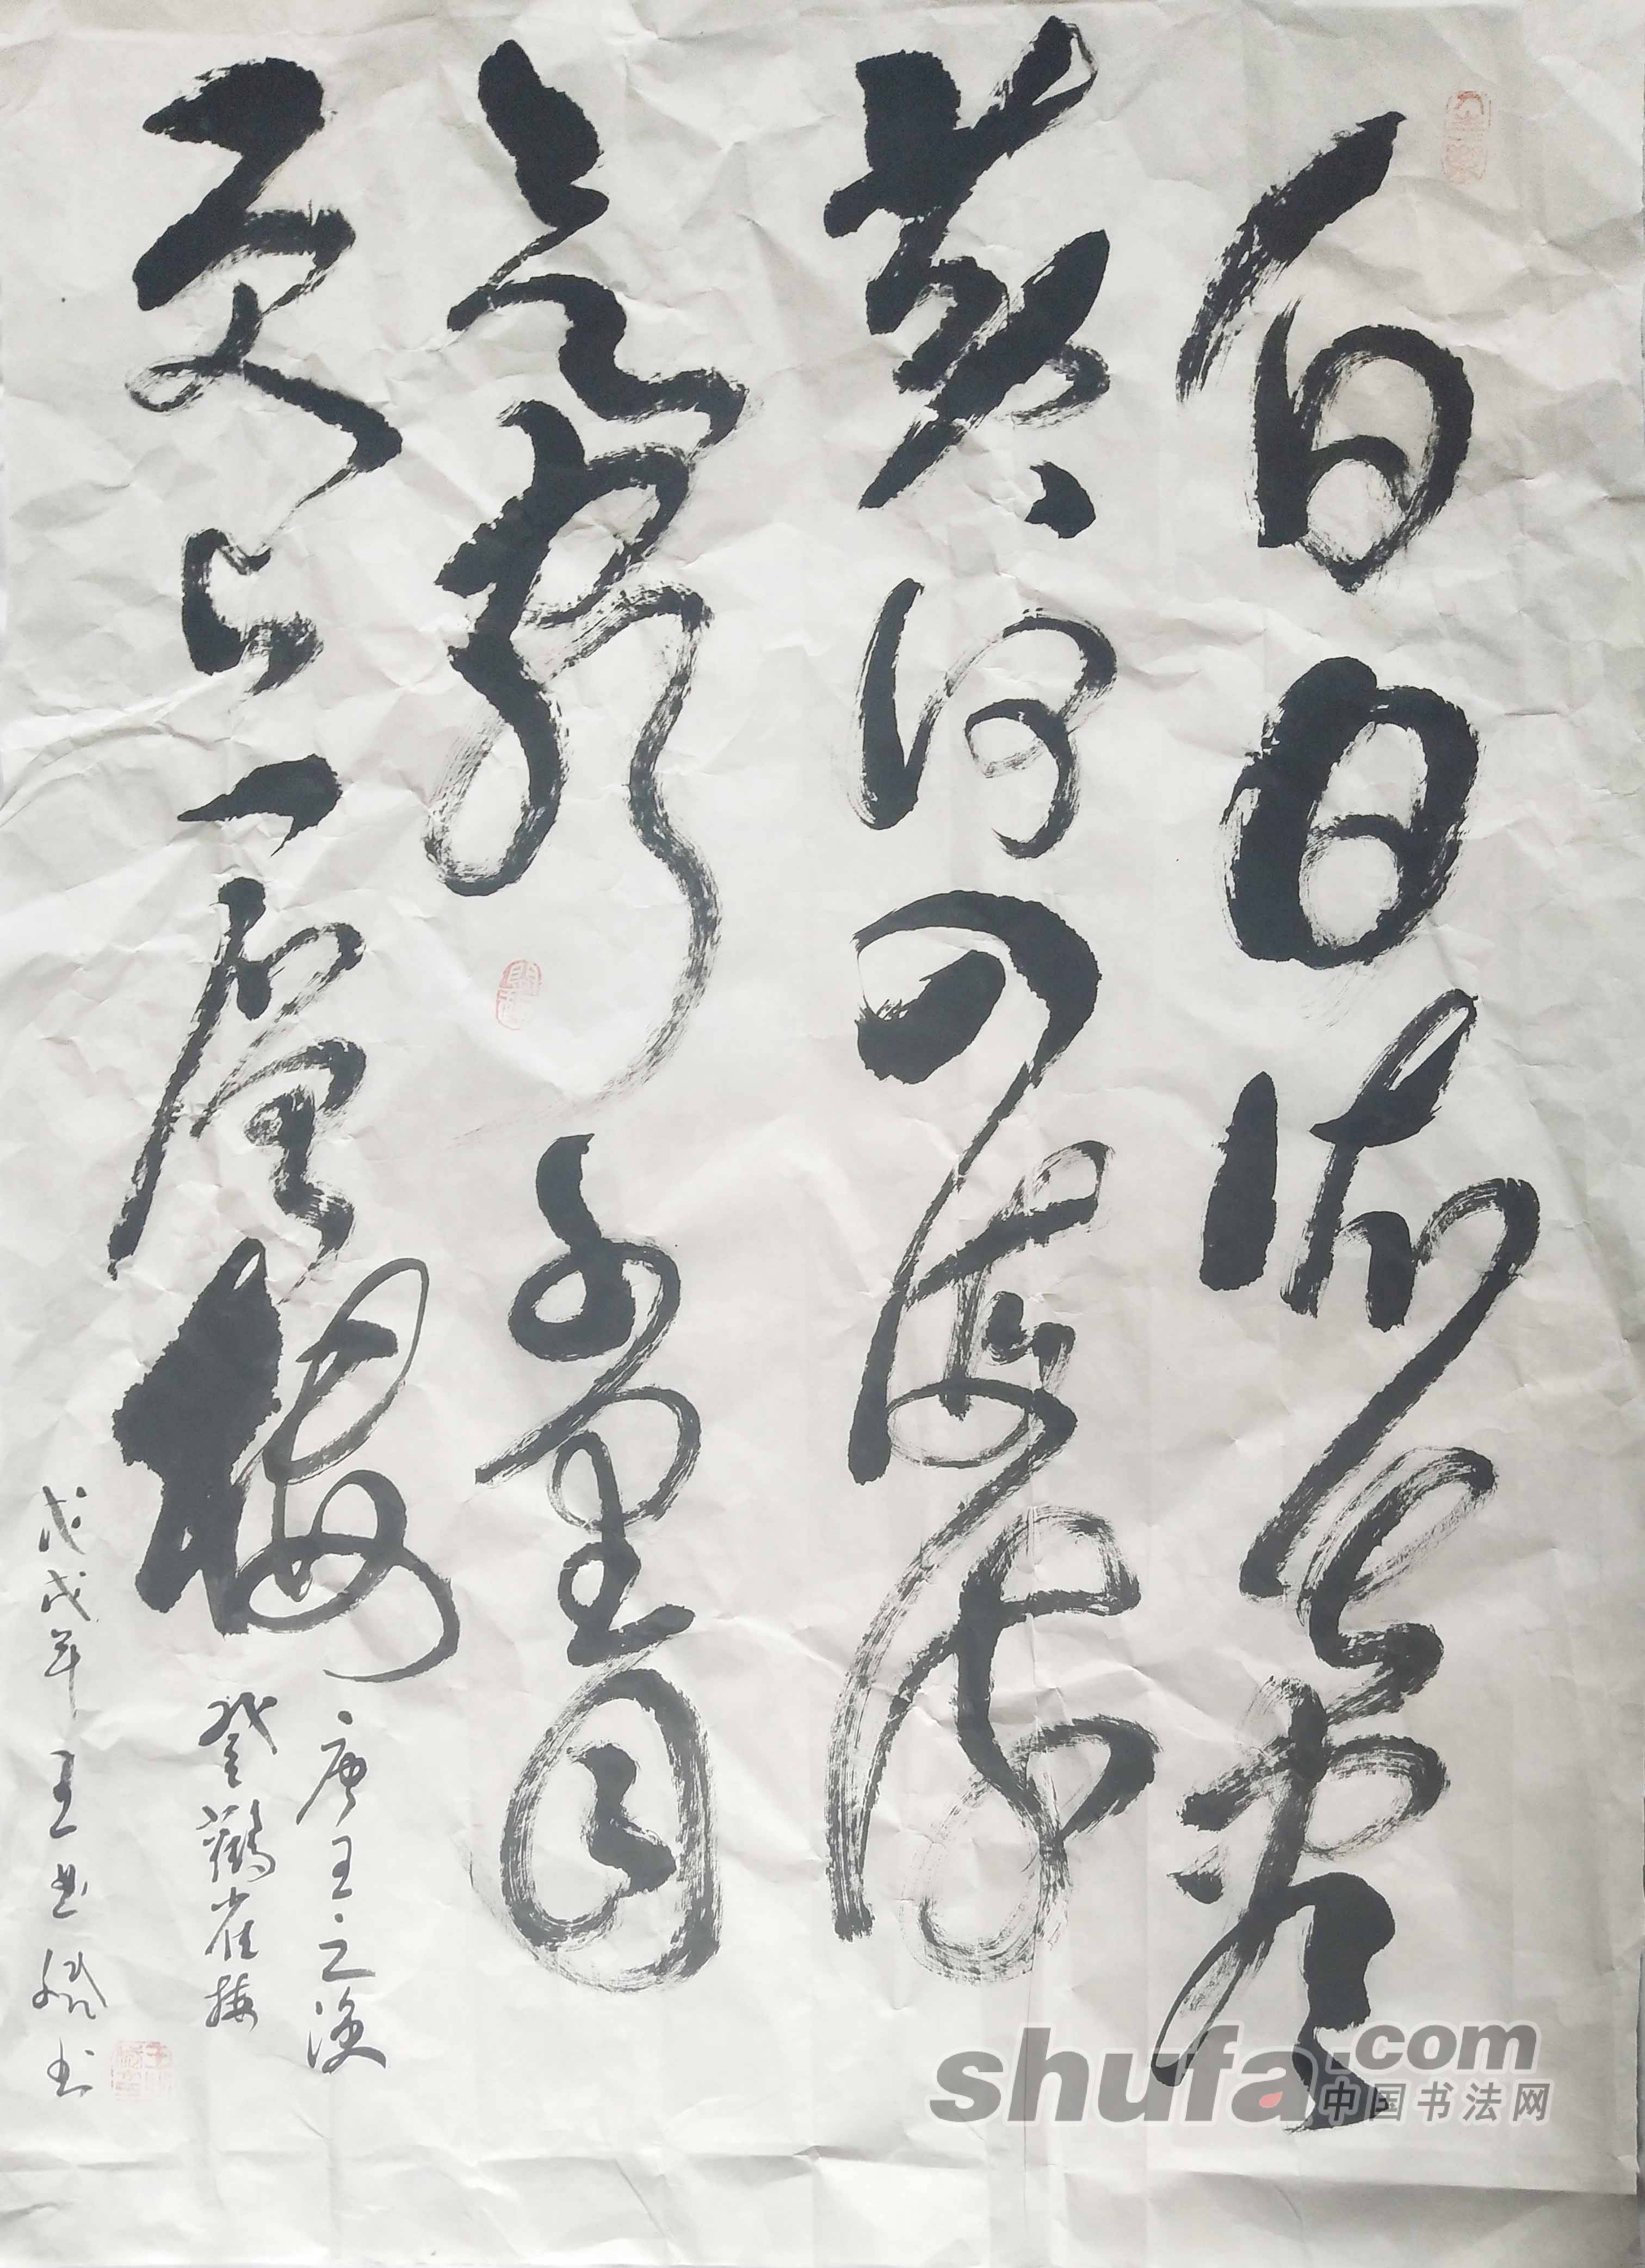 白日依山尽
黄河入海流
欲穷千里目
更上一層楼
唐王之涣
登鸛雀楼
戊戌年王斌书
shufa.com
中国书法网